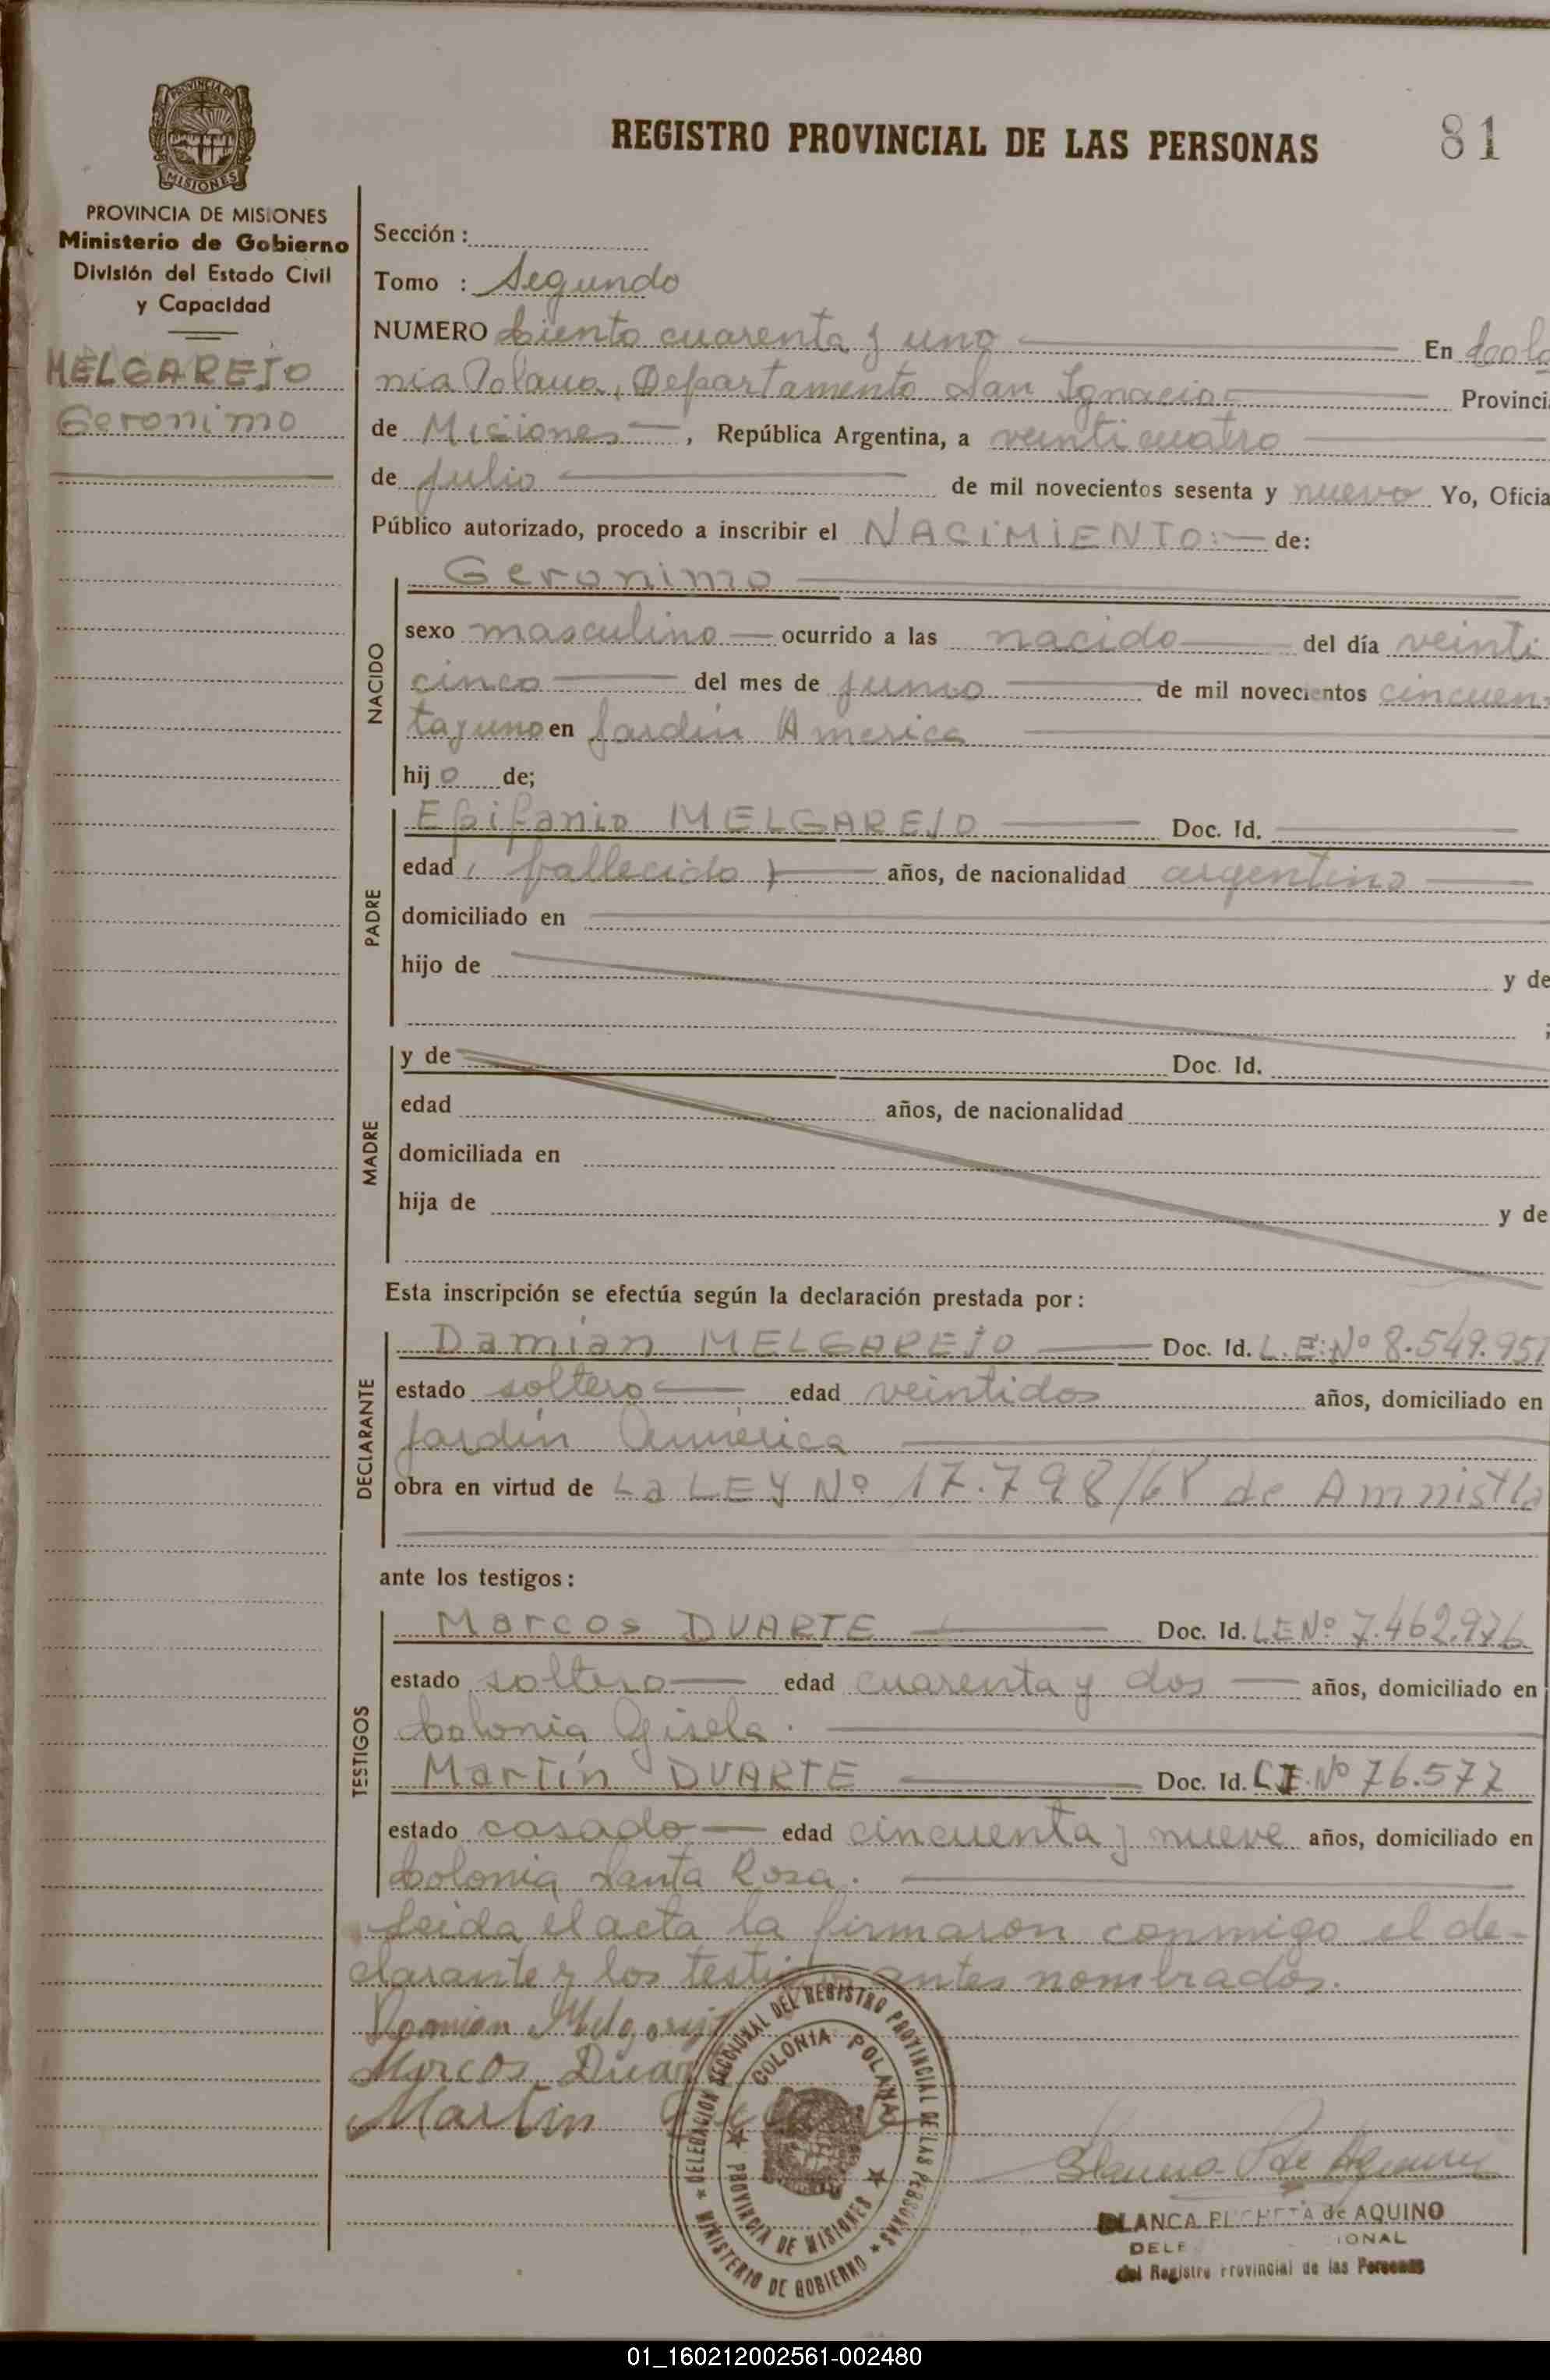 PROVINCIA DE
MISIONES
PROVINCIA DE MISIONES
Ministerio de Gobierno
División del Estado Civil
y Capacidad
MELGAREJO
Geronimo
REGISTRO PROVINCIAL DE LAS PERSONAS 81
Sección:
Tomo : Segundo
NUMERO Ciento cuarenta y uno En Colo
nia Polana, Departamento San Ignacio Provinci
de Misiones, República Argentina, a veinticuatro
de julio de mil novecientos sesenta y nueve Yo, Oficia
Público autorizado, procedo a inscribir el NACIMIENTO: de:
NACIDO
Geronimo
sexo masculino ocurrido a las nacido del día veinti
cinco del mes de junio de mil novecientos cincuen
ta y uno en Jardín America
hij o de;
PADRE
Epifanio MELGAREJO Doc. Id.
edad (fallecido) años, de nacionalidad argentino
domiciliado en
hijo de y de
MADRE
y de Doc. Id.
edad años, de nacionalidad
domiciliada en
hija de y de
Esta inscripción se efectúa según la declaración prestada por:
DECLARANTE
Damián MELGAREJO Doc. Id. L.E:Nº 8.549.951
estado soltero edad veintidos años, domiciliado en
Jardín América
obra en virtud de La LEY Nº 17.798/68 de Amnistía
ante los testigos:
TESTIGOS
Marcos DUARTE Doc. Id. LE Nº 7.462.976
estado soltero edad cuarenta y dos años, domiciliado en
Colonia Gisela.
Martín DUARTE Doc. Id. C.I. Nº 76.577
estado casado edad cincuenta y nueve años, domiciliado en
Colonia Santa Rosa.
Leida el acta la firmaron conmigo el de-
clarante y los testigos antes nombrados.
Damian Melgarejo
Marcos Duar
Martin
DELEGACION SECCIONAL DEL REGISTRO PROVINCIAL DE LAS PERSONAS
MINISTERIO DE GOBIERNO
COLONIA POLANA
PROVINCIA DE MISIONES
BLANCA de AQUINO
DELE IONAL
del Registro Provincial de las Personas
01_160212002561-002480